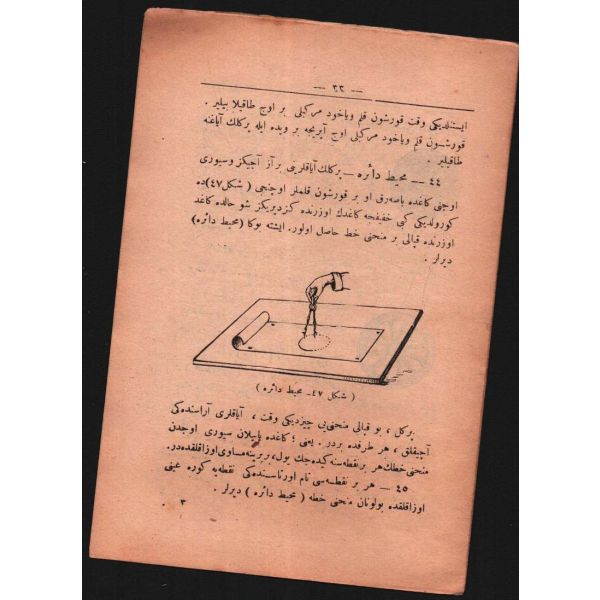 — ٣٣ —
ایستنلدیکی وقت قورشون قلم ویاخود مرکبلی بر اوج طاقیلا بیلیر .
قورشون قلم ویاخود مرکبلی اوج آیریجه بر ویده ایله پرکلك آیاغنه
طاقیلیر .
٤٤ — محیط دائره — پرکلك آیاقلرینی بر آز آچیکز و سیوری
اوجنی کاغده باصهرق او بر قورشون قلملی اوجنی ( شکل ٤٧ ) ده
کورولدیکی کبی خفیفجه کاغدك اوزرنده کزدیریکز شو حالده کاغد
اوزرنده قپالی بر منحنی خط حاصل اولور . ایشته بوکا ( محیط دائره )
دیرلر .
( شکل ٤٧ ـ محیط دائره )
پرکل ، بو قپالی منحنییی چیزدیکی وقت ، آیاقلری آراسندهکی
آچیقلق ، هر طرفده بردر . یعنی ؛ کاغده باتیریلان سیوری اوجدن
منحنی خطك هر بر نقطهسنه کیدهجك یول ، بربرینه مساوی اوزاقلقدهدر .
٤٥ — هر بر نقطهسی تام اورتاسندهکی نقطهیه کوره عینی
اوزاقلقده بولونان منحنی خطه ( محیط دائره ) دیرلر .
٣